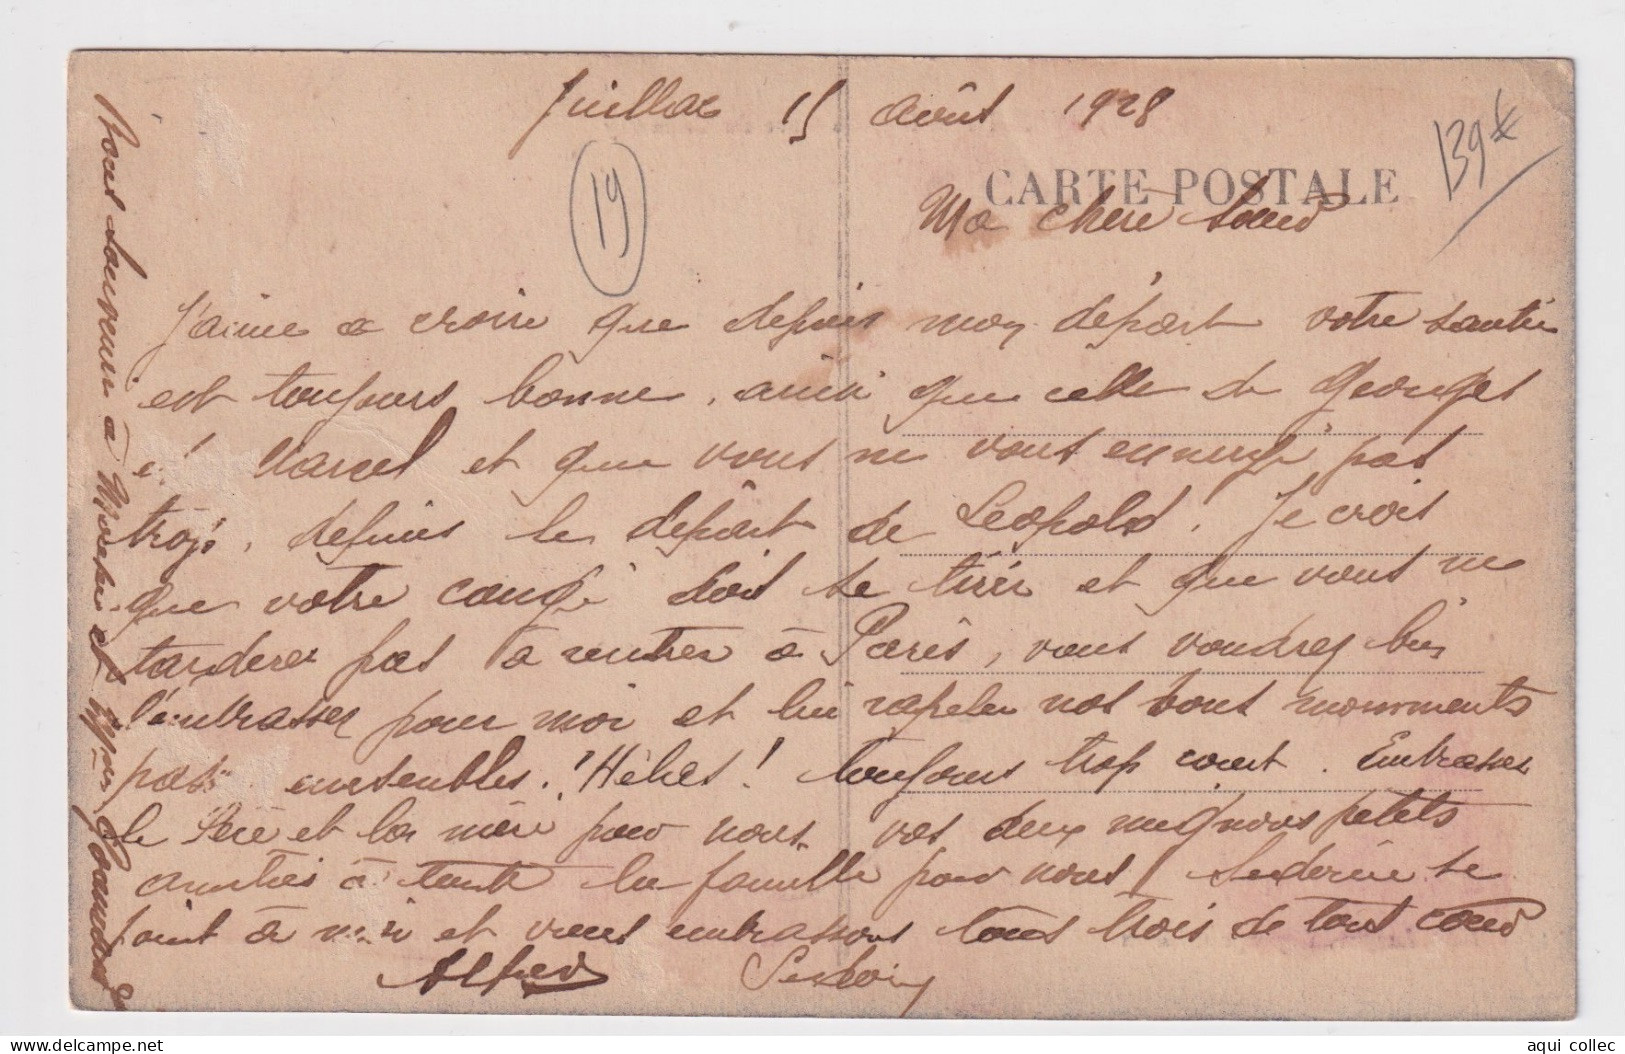 Juillac 15 août 1928
19
139 €
CARTE POSTALE
Ma chere Sœur
J'aime a croire que depuis mon départ votre santée
est toujours bonne, ainsi que celle de Georges
et Marcel et que vous ne vous ennuyé pas
trop, depuis le depârt de Leopold. Je crois
que votre congé doit se tirér et que vous ne
tarderer pas à rentrer à Paris, vous voudrez bien
l'embrasser pour moi et lui rapeler nos bons monments
passé ensembles. Hélas! toujours trop court. Embrasser
le Père et la mère pour nous vos deux mignons petits
amitiés à toute la famille pour nous,
joint à moi et vous embrassons tous trois de tout cœur
Alfred
Bons souvenir à
aqui collec